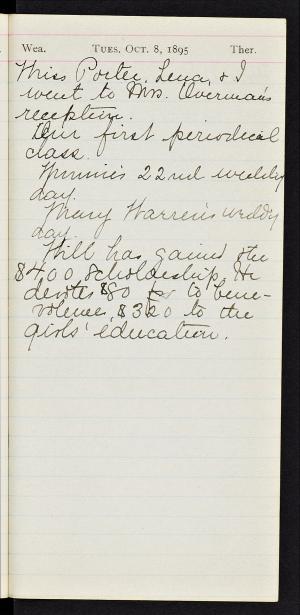 Wea. TUES. OCT. 8, 1895 Ther.
Miss Porter, Lena, & I
went to Mrs. Overman's
reception.
Our first periodical
class.
Winnie's 22nd wedding
day.
Mary Warren's wedding
day.
Will has gained the
$400 scholarship, He
devotes $80 to bene-
volence, $320 to the
girls' education.